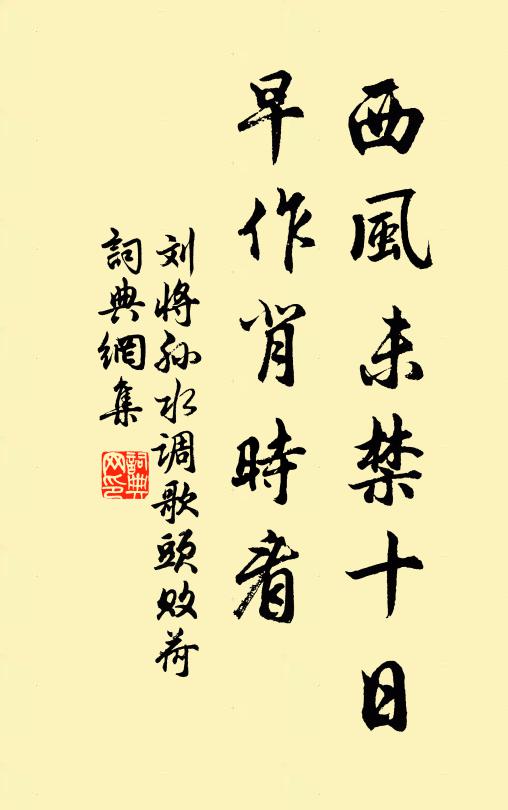 西風未禁十日
早作背時看
刘将孙水调歌頭败荷
詞典網集
詞典網印